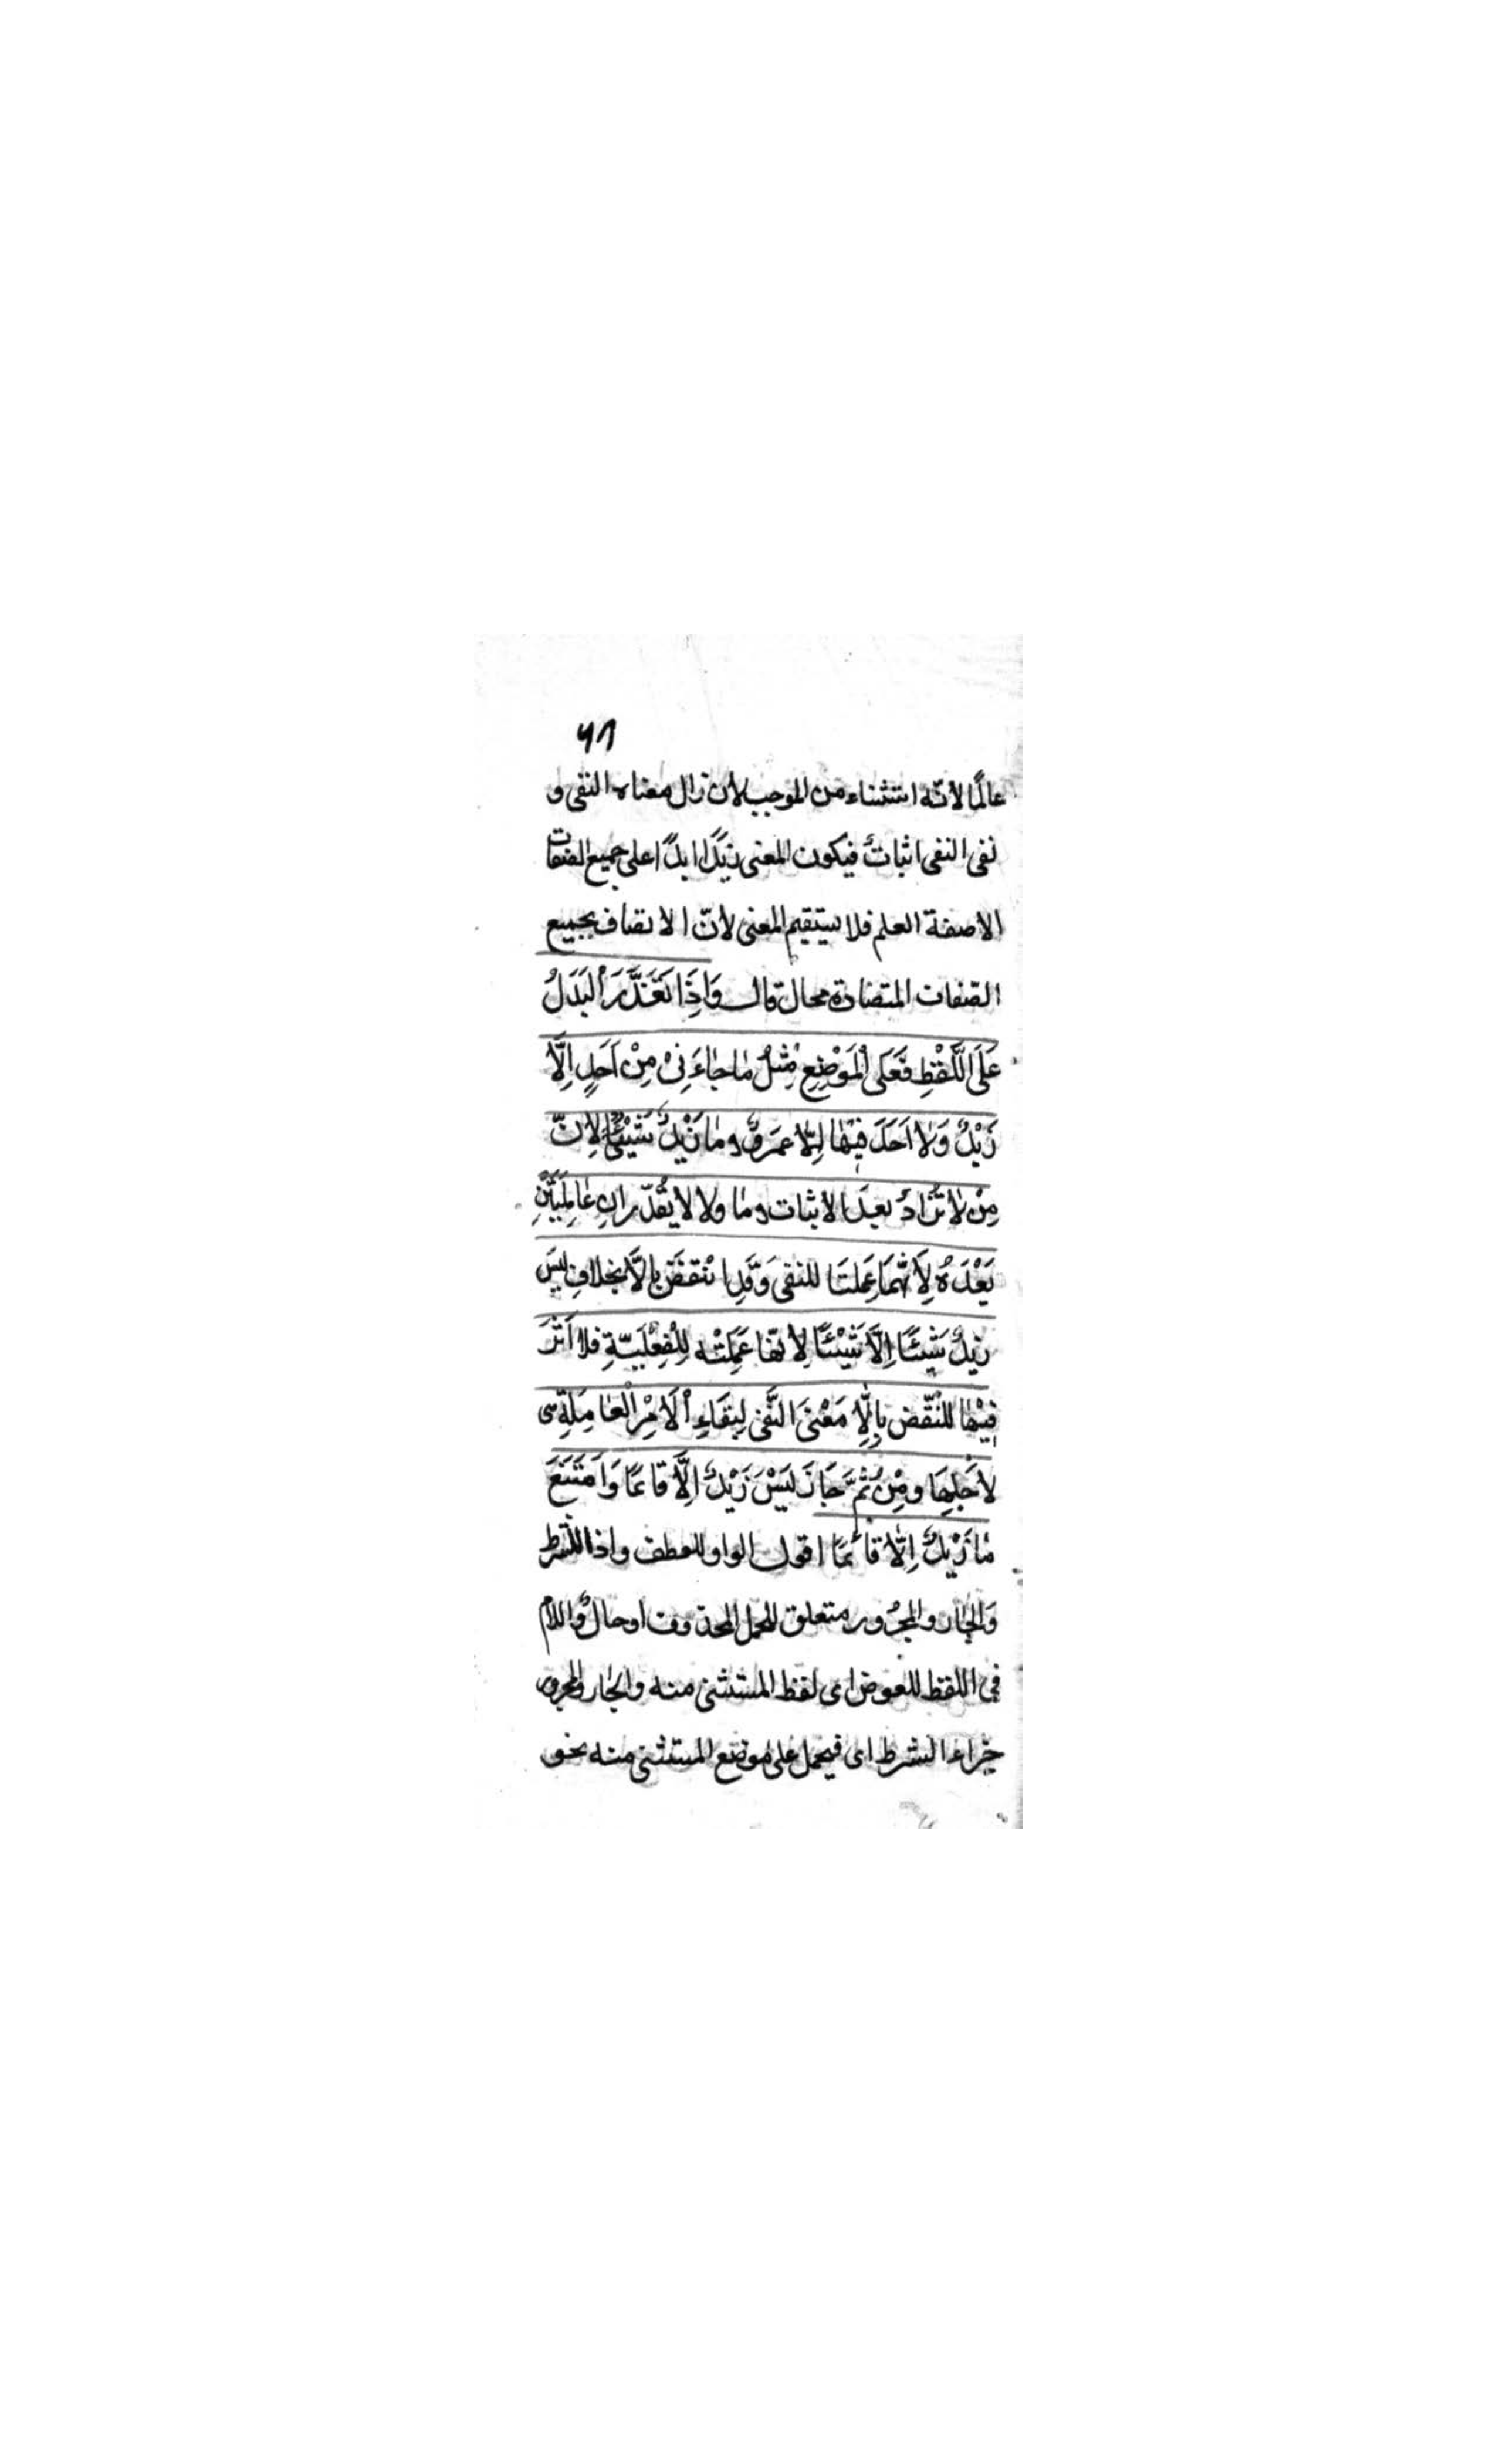 ٦٨
عالمًا لأنّه استثناء من الموجب لأن زال معناه النفى و
نفى النفى اثباتٌ فيكون المعنى زيدًا ابدًا على جميع الصفات
الا صفة العلم فلا يستقيم المعنى لأنّ الاتصاف بجميع
الصّفات المتضادة محال قال وَاِذَا تَعَذَّرَ اْلبَدَلُ
عَلَى اللَّفْظِ فَعَلَى اْلمَوْضِعِ مِثْلُ مَا جَاءَ نِىْ مِنْ اَحَدٍ اِلَّا
زَيْدٌ وَلَا اَحَدَ فِيْهَا اِلّا عَمَروٌ وما زَيْدٌ شَيْئًا لِاَنّ
مِنْ لا تُزَادُ بعدَ الاثبات وما ولا لا يُقَدّرانِ عَامِلَتَيْنِ
بَعْدَهُ لِاَنَّهُمَا عَمِلَتَا للنفى وَقَدِ انْتَقَضَ بِاِلَّا بخلافِ لَيْسَ
زيدٌ شَيْئًا اِلَّا شَيْئًا لانّها عَمِلَتْ لِلْفِعْلِيّةِ فلا اَثَرَ
فِيْهَا لِلنَّقْضِ بِاِلَّا مَعْنَى النَّفْىِ لِبَقَاءِ اْلاَمْرِ اْلعَامِلَةِ هى
لِاَجْلِهَا ومِنْ ثَمَّ جَازَ لَيْسَ زَيْدٌ اِلَّا قائمًا وَامْتَنَعَ
مَا زَيْدٌ اِلّا قائمًا اقول الواو للعطف واذا للشرط
وَالجار والمجرُور متعلق للحمل المحذوف او حالٌ واللام
فى اللفظ للعوض اى لفظ المستثنى منه والجار والمجرور
جزاء الشرط اى فيحمل على موضع المستثنى منه نحو